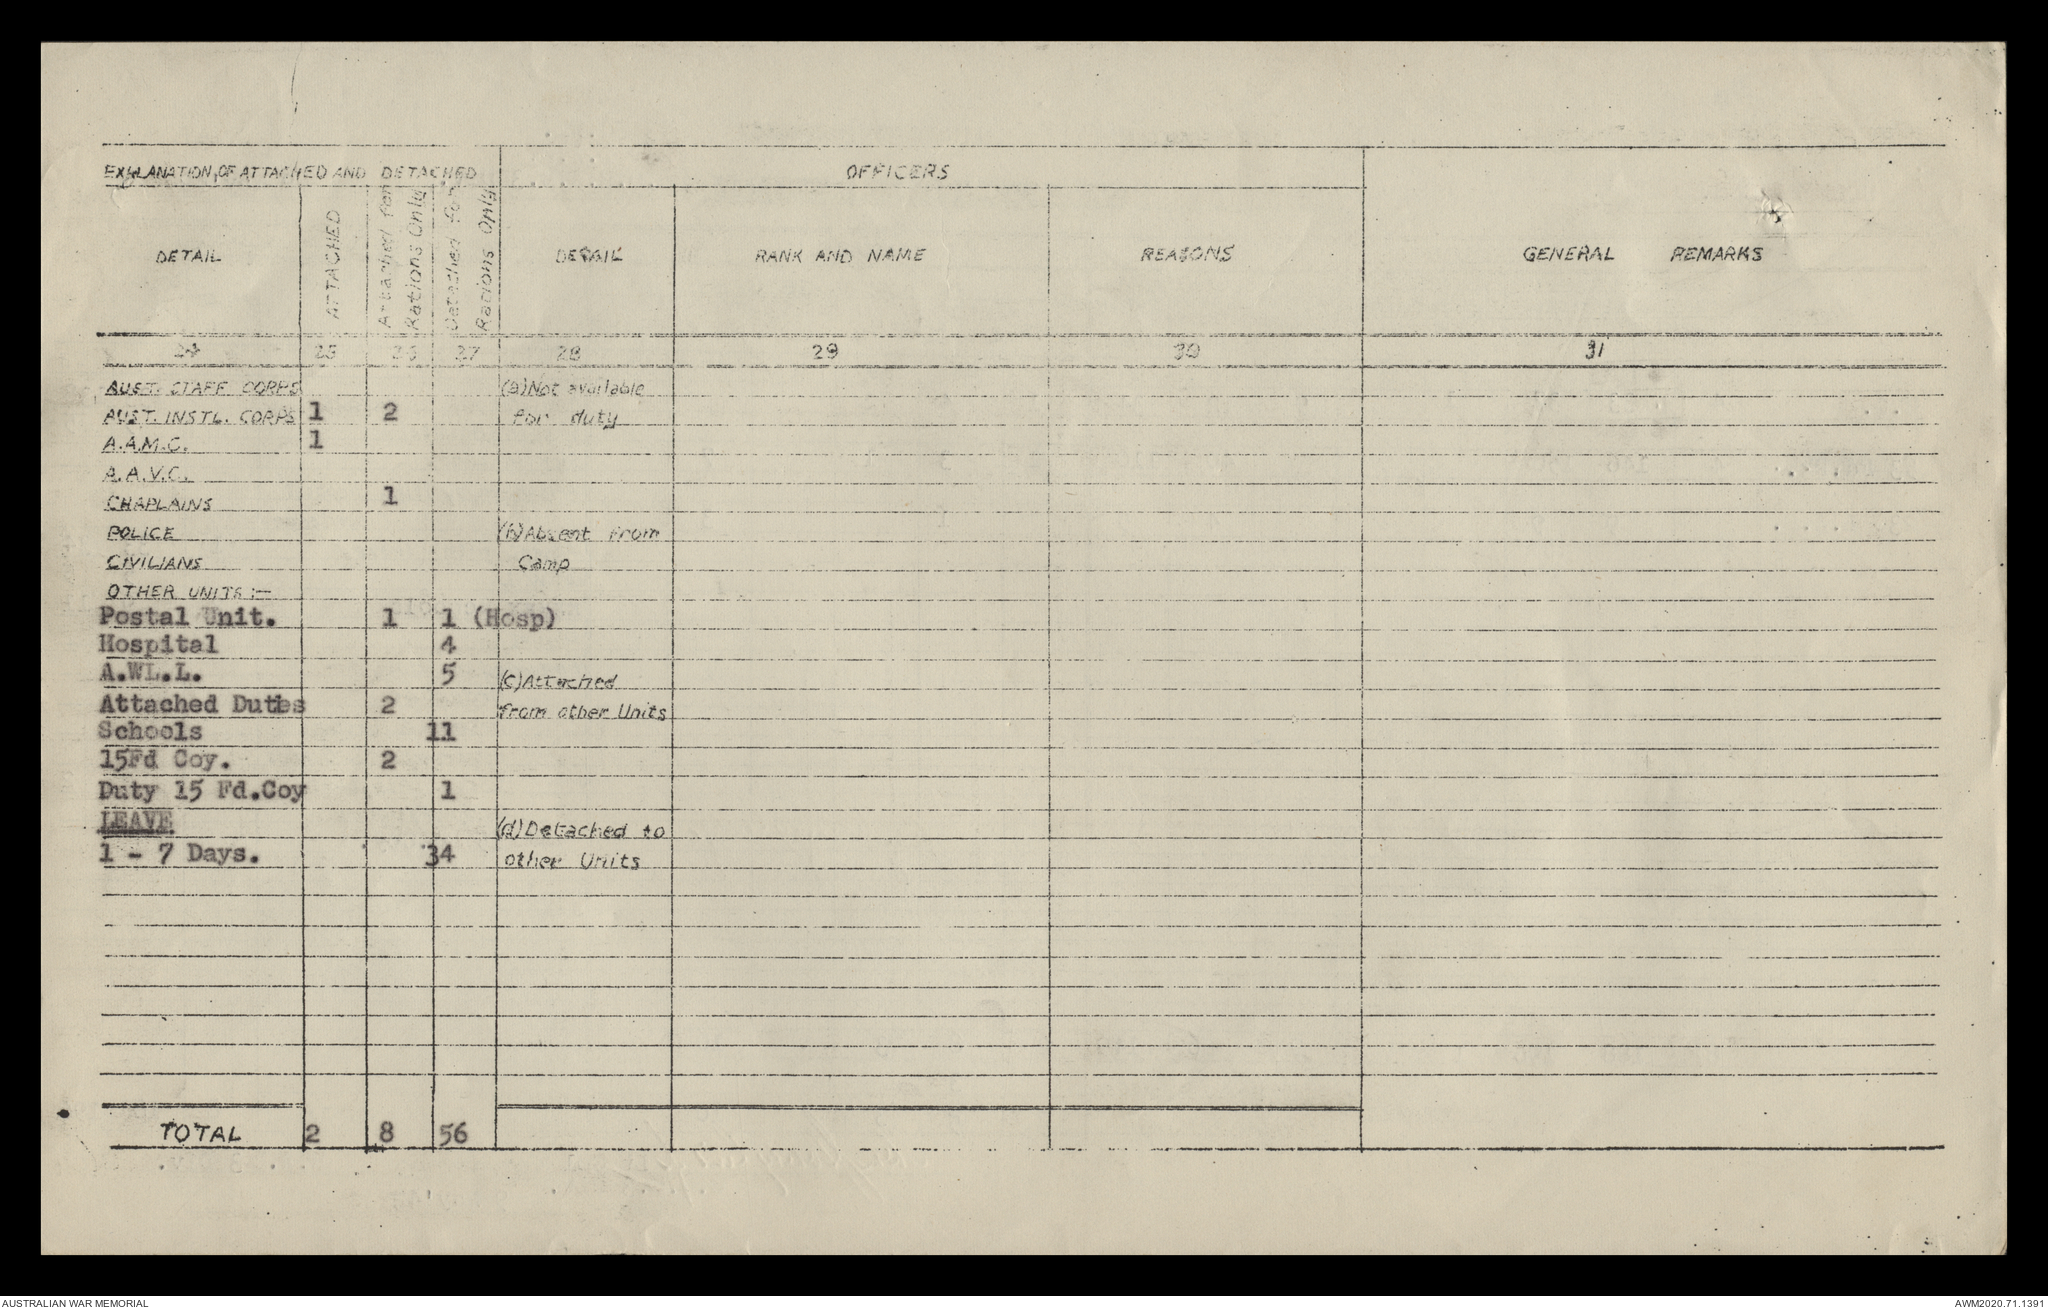 EXPLANATION, OF ATTACHED AND DETACHED OFFICERS
DETAIL ATTACHED Attached for Rations Only Detached for Rations Only DETAIL RANK AND NAME REASONS GENERAL REMARKS
24 25 26 27 28 29 30 31
AUST. STAFF CORPS (a) Not available
AUST. INSTL. CORPS 1 2 for duty
A.A.M.C. 1
A.A.V.C.
CHAPLAINS 1
POLICE (b) Absent from
CIVILIANS Camp
OTHER UNITS:-
Postal Unit. 1 1 (Hosp)
Hospital 4
A.WL.L. 5 (c) Attached
Attached Duties 2 from other Units
Schools 11
15Fd Coy. 2
Duty 15 Fd.Coy 1
LEAVE (d) Detached to
1 - 7 Days. 34 other Units
TOTAL 2 8 56
AUSTRALIAN WAR MEMORIAL AWM2020.71.1391